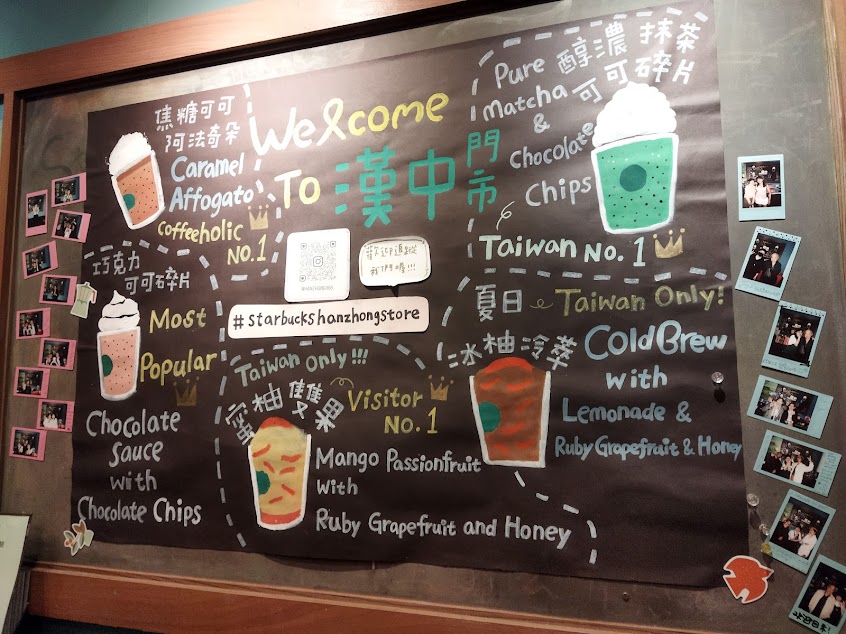 Welcome
To 漢中門市
焦糖可可
阿法奇朵
Caramel
Affogato
Coffeeholic
No.1
Pure 醇濃 抹茶
Matcha 可可碎片
&
Chocolate
Chips
Taiwan No. 1
歡迎追蹤
我們喔!!!
#starbuckshanzhongstore
巧克力
可可碎片
Most
Popular
Chocolate
Sauce
with
Chocolate Chips
Taiwan Only!!!
蜜柚雙果
Visitor
No. 1
Mango Passionfruit
with
Ruby Grapefruit and Honey
夏日 Taiwan Only!
冰柚冷萃
Cold Brew
with
Lemonade &
Ruby Grapefruit & Honey